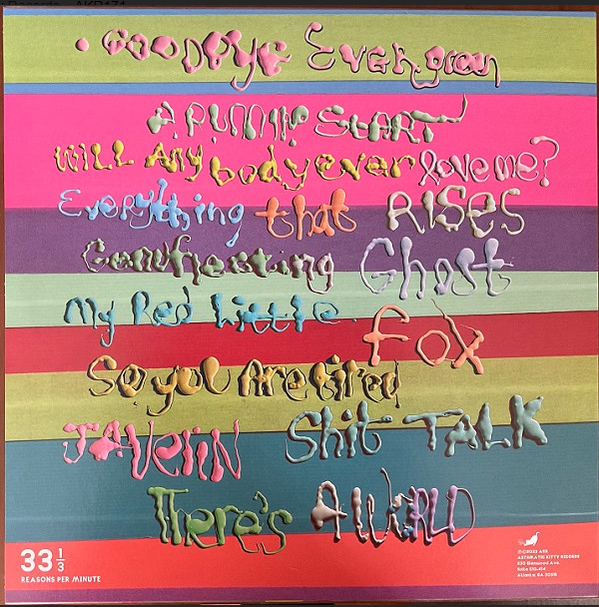 GOODBYE Evergreen
A START
WILL ANy body ever love me?
Everything that RISES
Genuflecting Ghost
My Red Little Fox
So you Are tired
JAVELIN Shit TALK
There's A WORLD
33 1/3
REASONS PER MINUTE
ASTHMATIC KITTY RECORDS